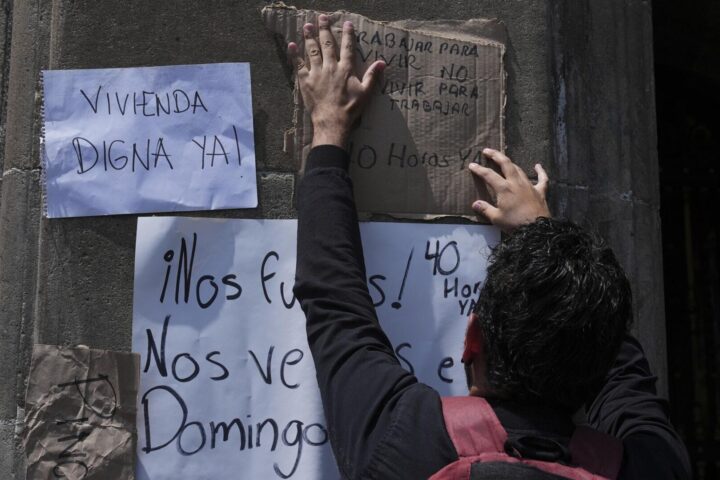 VIVIENDA
DIGNA YA!
TRABAJAR PARA
VIVIR NO
VIVIR PARA
TRABAJAR
40 Horas YA
¡Nos
40
Horas
YA
Nos
Domingo